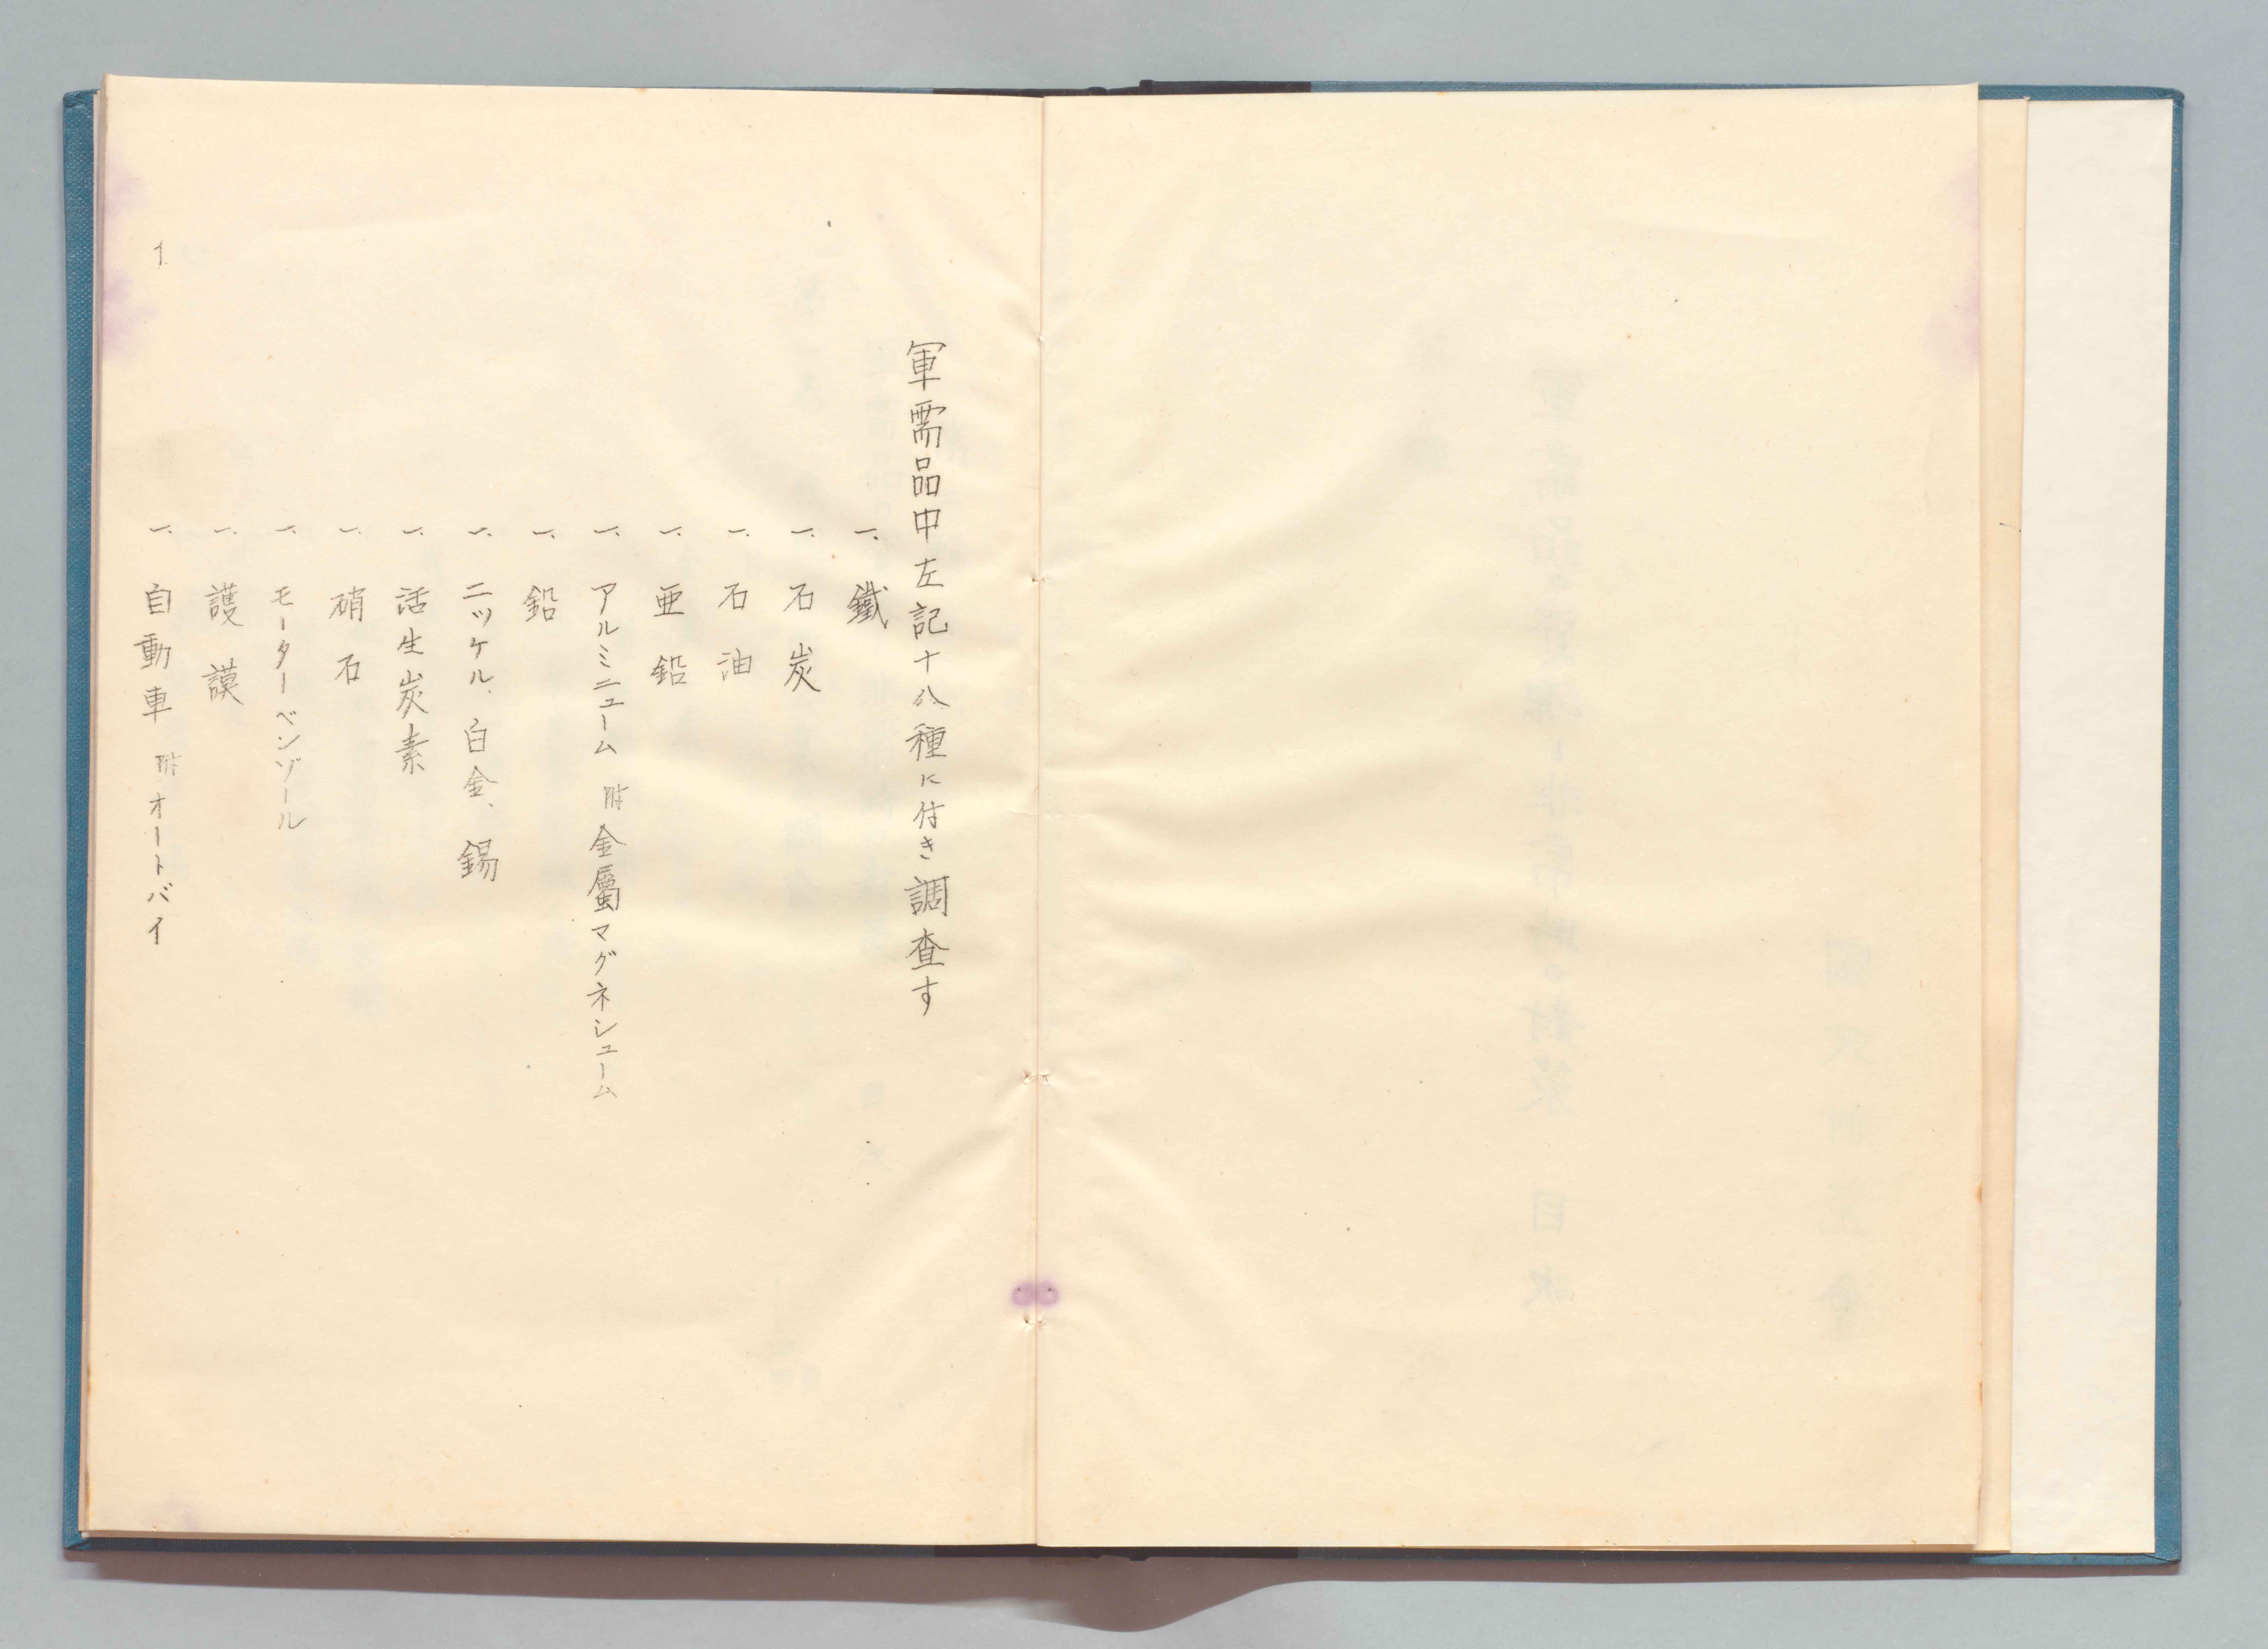 軍需品中左記十八種に付き調査す
一、鐵
一、石炭
一、石油
一、亜鉛
一、アルミニューム 附金屬マグネシューム
一、鉛
一、ニッケル、白金、錫
一、活生炭素
一、硝石
一、モーターベンゾール
一、護謨
一、自動車 附オートバイ
1